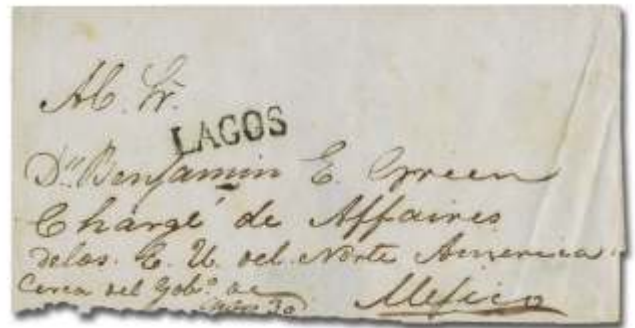 Al Sr.
LAGOS
Dn. Benjamin E. Green
Chargé de Affaires
de los E. U. del Norte America
Cerca del Gobo. de Mejico
Enero 30